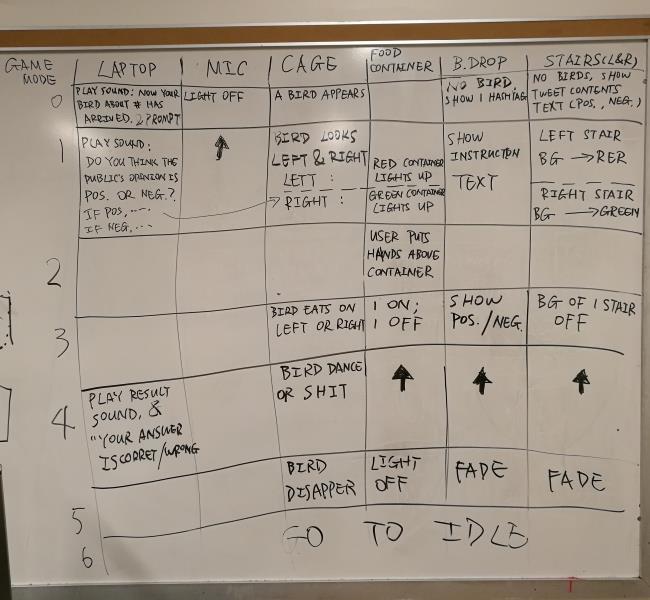 GAME MODE
LAPTOP
MIC
CAGE
FOOD CONTAINER
B.DROP
STAIRS(L&R)
0
PLAY SOUND: NOW YOUR
BIRD ABOUT # HAS
ARRIVED. 2 PROMPT
LIGHT OFF
A BIRD APPEARS
NO BIRD,
SHOW 1 HASHTAG
NO BIRDS, SHOW
TWEET CONTENTS
TEXT (POS., NEG.)
1
PLAY SOUND:
DO YOU THINK THE
PUBLIC'S OPINION IS
POS. OR NEG.?
IF POS, ....
IF NEG, ...
↑
BIRD LOOKS
LEFT & RIGHT
LETT :
RIGHT :
RED CONTAINER
LIGHTS UP
GREEN CONTAINER
LIGHTS UP
SHOW
INSTRUCTION
TEXT
LEFT STAIR
BG → RER
RIGHT STAIR
BG → GREEN
2
USER PUTS
HANDS ABOVE
CONTAINER
3
BIRD EATS ON
LEFT OR RIGHT
1 ON;
1 OFF
SHOW
POS./NEG.
BG OF 1 STAIR
OFF
4
PLAY RESULT
SOUND, &
"YOUR ANSWER
IS CORRET/WRONG
BIRD DANCE
OR SHIT
↑
↑
↑
5
BIRD
DISAPPER
LIGHT
OFF
FADE
FADE
6
GO TO IDLE